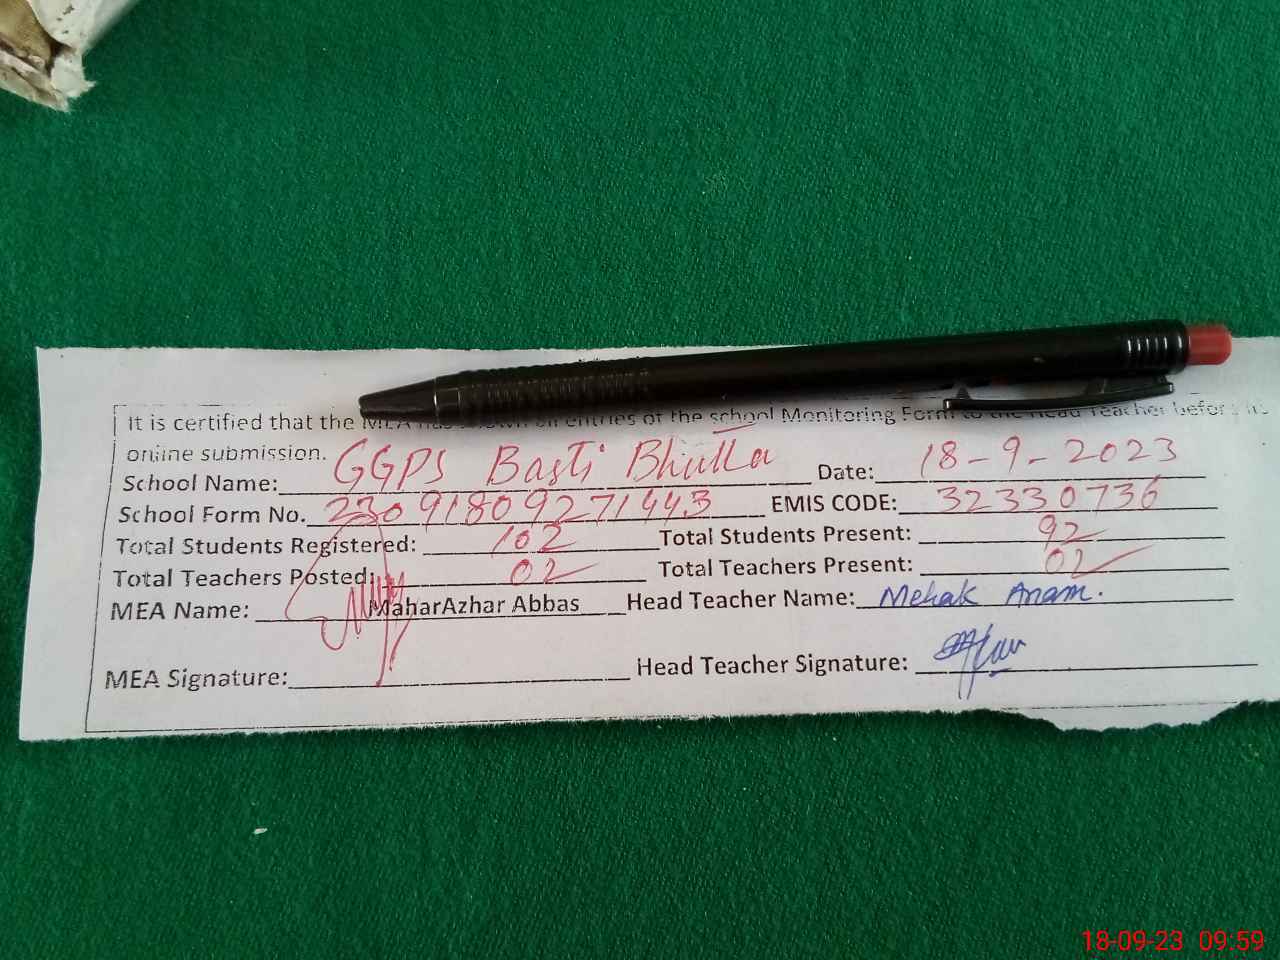 It is certified that the MEA has shown all entries of the school Monitoring Form to the Head Teacher before
online submission.
School Name: GGPS Basti Bhutta Date: 18-9-2023
School Form No. 23091809271443 EMIS CODE: 32330736
Total Students Registered: 102 Total Students Present: 92
Total Teachers Posted: 02 Total Teachers Present: 02
MEA Name: MaharAzhar Abbas Head Teacher Name: Mehak Anam.
MEA Signature: Head Teacher Signature:
18-09-23 09:59